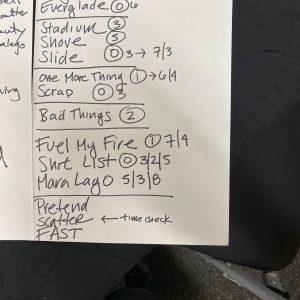 Everglade ⓪ 6
Stadium ③
Shove ⑤
Slide ⓪ 3 → 7/3
One More Thing ① → 6/4
Scrap ⓪ 3
Bad Things ②
Fuel My Fire ① 7/4
Shit List ⓪ 3/2/5
Mara Lago 5/3/8
Pretend
Scatter ← time check
FAST